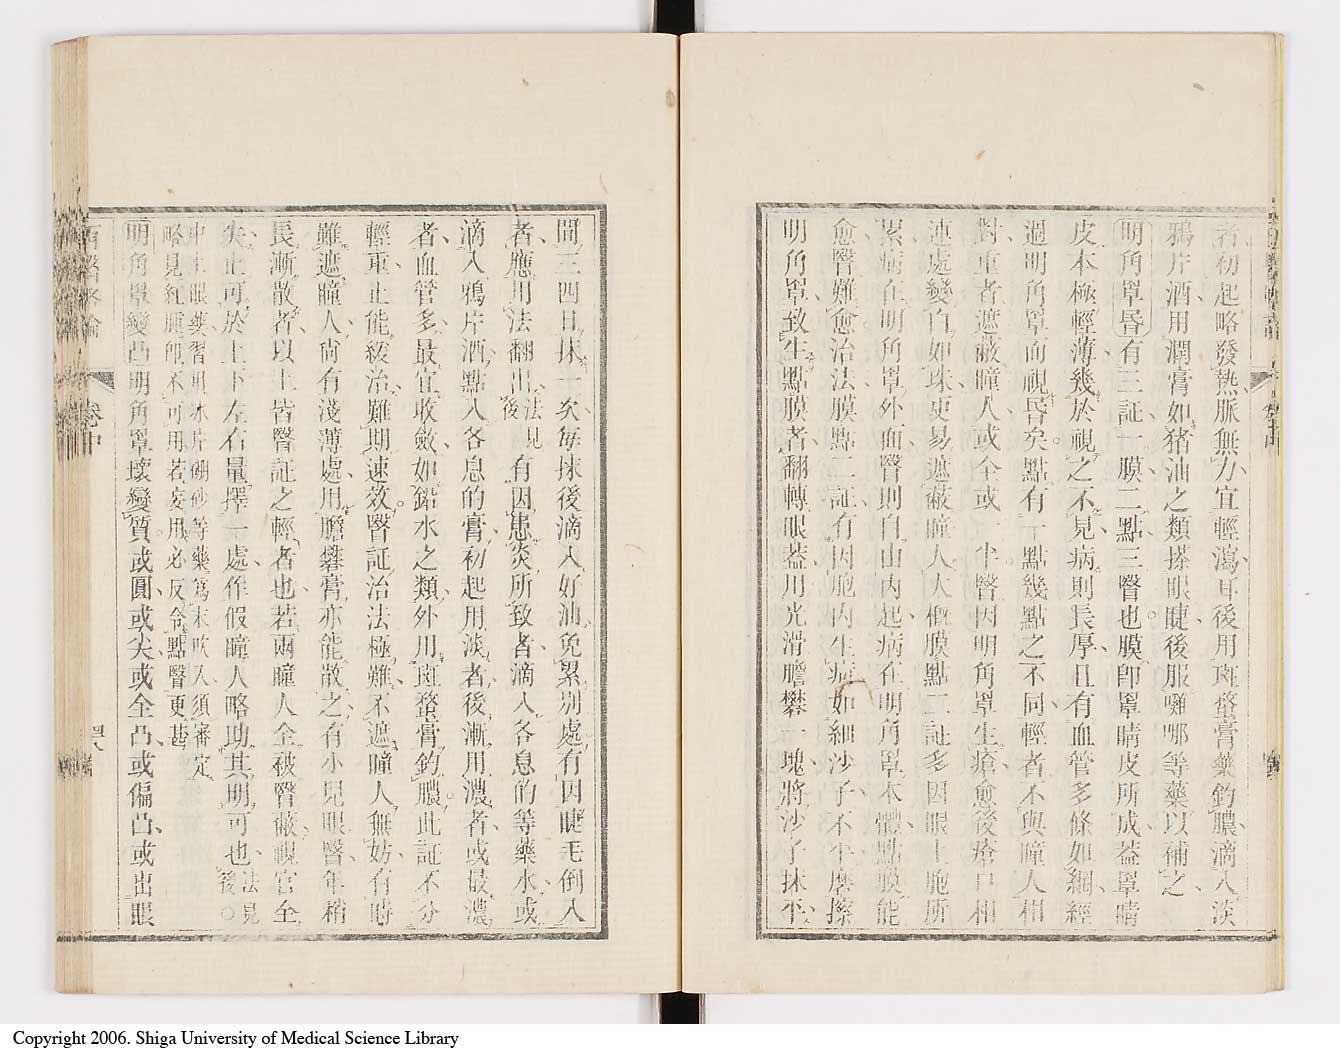 者初起略發熱脈無力宜輕瀉耳後用斑蝥膏藥釣膿滴入淡
鴉片酒用潤膏如猪油之類搽眼睫後服囉哪等藥以補之
明角罩昬有三証一膜二點三瞖也膜卽罩睛皮所成葢罩睛
皮本極輕薄幾於視之不見病則長厚且有血管多條如網經
過明角罩而視昏矣點有一點幾點之不同輕者不與瞳人相
對重者遮蔽瞳人或全或半瞖因明角罩生瘡愈後瘡口相
連處變白如珠更易遮蔽瞳人大槪膜點二証多因眼上胞所
累病在明角罩外面瞖則自內起病在明角罩本體點膜能
愈瞖難愈治法膜點二証有因胞內生病如細沙子不平磨擦
明角罩致生點膜者翻轉眼葢用光滑膽礬一塊將沙子抹平
間三四日抹一次每抹後滴入好油免累別處有因睫毛倒入
者應用法翻出法見後有因患炎所致者滴入各息的等藥水或
滴入鴉片酒點入各息的膏初起用淡者後漸用濃者或最濃
者血管多最宜收斂如鉛水之類外用斑蝥膏釣膿此証不分
輕重止能緩治難期速效瞖証治法極難不遮瞳人無妨有時
難遮瞳人尙有淺薄處用膽礬膏亦能散之有小兒眼瞖年稍
長漸散者以上皆瞖証之輕者也若兩瞳人全被瞖蔽視官全
失止可於上下左右量擇一處作假瞳人略助其明可也法見後○
中土眼藥習用冰片硼砂等藥爲末吹入須審定
略見紅腫卽不可用若妄用必反令點瞖更甚
明角罩變凸明角罩壞變質或圓或尖或全凸或偏凸或出眼
西醫略論
卷中
四八